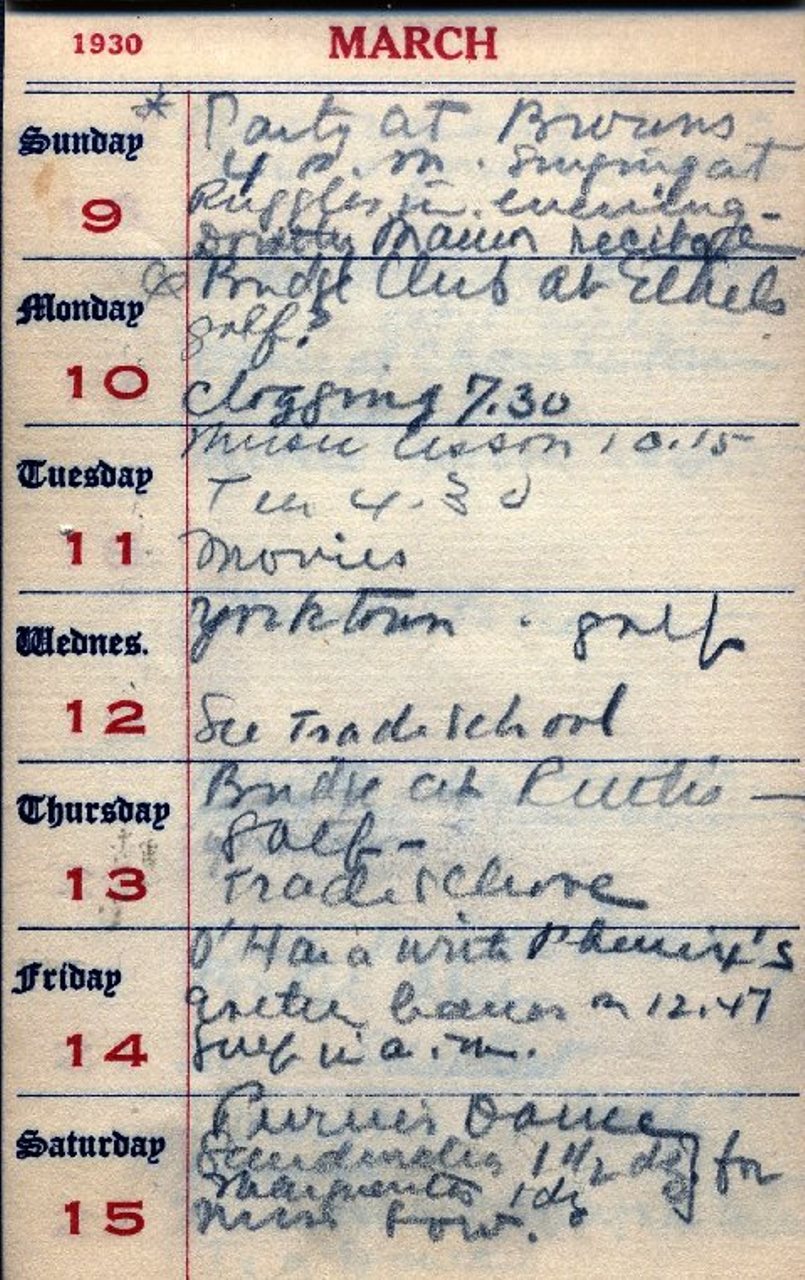 1930 MARCH
Sunday
9
* Party at Browns
4 p.m. Singing at
Ruggles in evening -
Manor recital
Monday
10
Bridge Club at Ethels
golf?
clogging 7.30
Tuesday
11
Music lesson 10.15
Tea 4.30
Movies
Wednes.
12
Yorktown . golf
See Trade School
Thursday
13
Bridge at Ruth's —
golf -
Trade School
Friday
14
O'Hara with Phenix's
12.47
Golf in a.m.
Saturday
15
Dance
Sandwiches 1 1/2 dz } for
Marguerites 1 dz
Miss